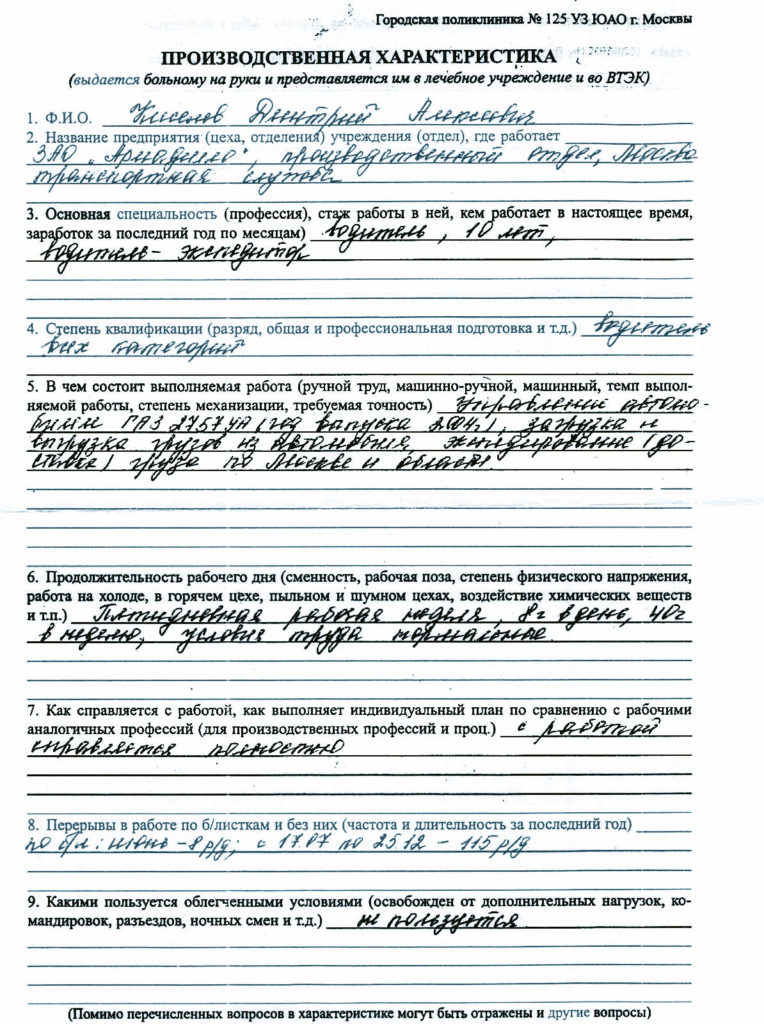 Городская поликлиника № 125 УЗ ЮАО г. Москвы
ПРОИЗВОДСТВЕННАЯ ХАРАКТЕРИСТИКА
(выдается больному на руки и представляется им в лечебное учреждение и во ВТЭК)
1. Ф.И.О. Киселев Дмитрий Алексеевич
2. Название предприятия (цеха, отделения) учреждения (отдел), где работает
ЗАО „ “, производственный отдел, Москва
транспортная служба
3. Основная специальность (профессия), стаж работы в ней, кем работает в настоящее время,
заработок за последний год по месяцам) водитель, 10 лет,
водитель - экспедитор
4. Степень квалификации (разряд, общая и профессиональная подготовка и т.д.) водитель
всех категорий
5. В чем состоит выполняемая работа (ручной труд, машинно-ручной, машинный, темп выпол-
няемой работы, степень механизации, требуемая точность) Управление автомо-
билем ГАЗ 2757УА (год выпуска 2004г), загрузка и
выгрузка грузов из автомобиля, экспедирование (до-
ставка) груза по Москве и области.
6. Продолжительность рабочего дня (сменность, рабочая поза, степень физического напряжения,
работа на холоде, в горячем цехе, пыльном и шумном цехах, воздействие химических веществ
и т.п.) Пятидневная рабочая неделя, 8ч в день, 40ч
в неделю, условия труда нормальные.
7. Как справляется с работой, как выполняет индивидуальный план по сравнению с рабочими
аналогичных профессий (для производственных профессий и проц.) с работой
справляется полностью
8. Перерывы в работе по б/листкам и без них (частота и длительность за последний год)
по б/л: июнь - 8 р/д; с 17.07 по 25.12 - 115 р/д
9. Какими пользуется облегченными условиями (освобожден от дополнительных нагрузок, ко-
мандировок, разъездов, ночных смен и т.д.) не пользуется
(Помимо перечисленных вопросов в характеристике могут быть отражены и другие вопросы)